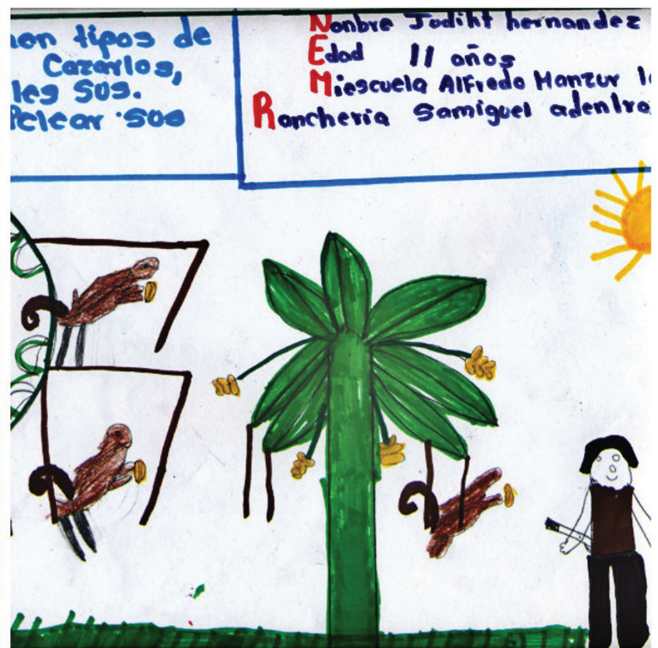 on tipos de
Cazarlos,
les SOS.
Pelear SOS
Nonbre Jodiht hernandez
Edad 11 años
Miescuela Alfredo Manzur
Rancheria Samiguel adentro